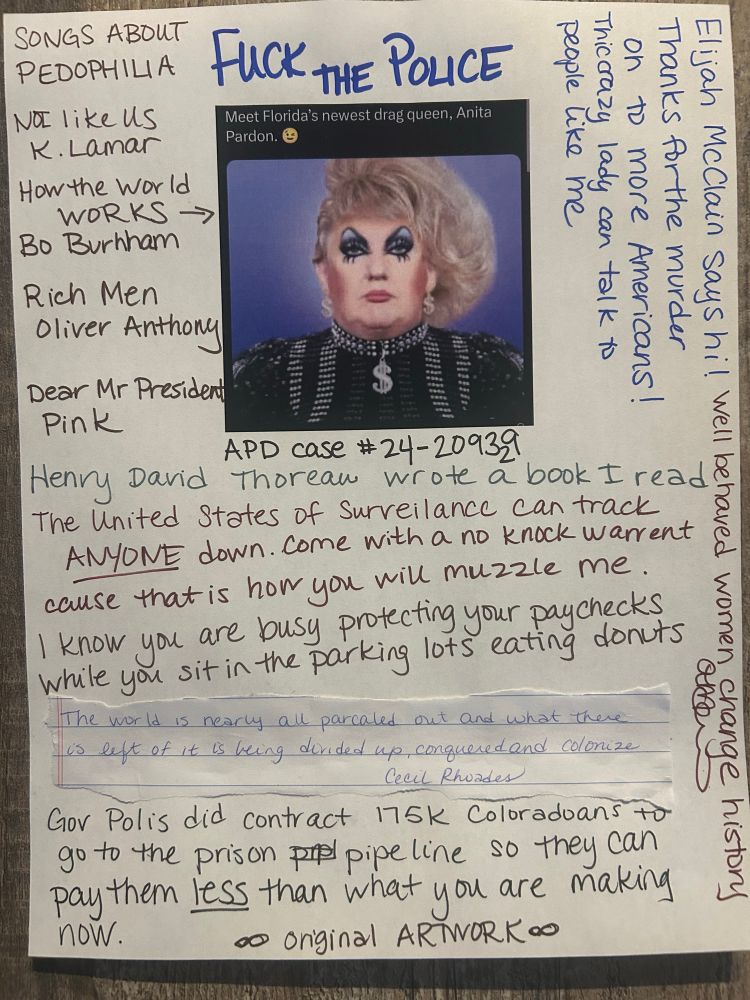 SONGS ABOUT
PEDOPHILIA
FUCK THE POLICE
NOT like US
K. Lamar
How the world
WORKS →
Bo Burhham
Rich Men
Oliver Anthony
Dear Mr President
Pink
Meet Florida's newest drag queen, Anita
Pardon. 😉
$
Elijah McClain says hi!
Thanks for the murder
on to more Americans!
This crazy lady can talk to
people like me
APD case #24-20939
Henry David Thoreau wrote a book I read
The United States of Surveilance can track
ANYONE down. Come with a no knock warrent
cause that is how you will muzzle me.
I know you are busy protecting your paychecks
while you sit in the parking lots eating donuts
well behaved women change history
The world is nearly all parcaled out and what there
is left of it is being divided up, conquered and colonize
Cecil Rhoades
Gov Polis did contract 175K Coloradoans to
go to the prison pipeline so they can
pay them less than what you are making
now.
∞ original ARTWORK ∞